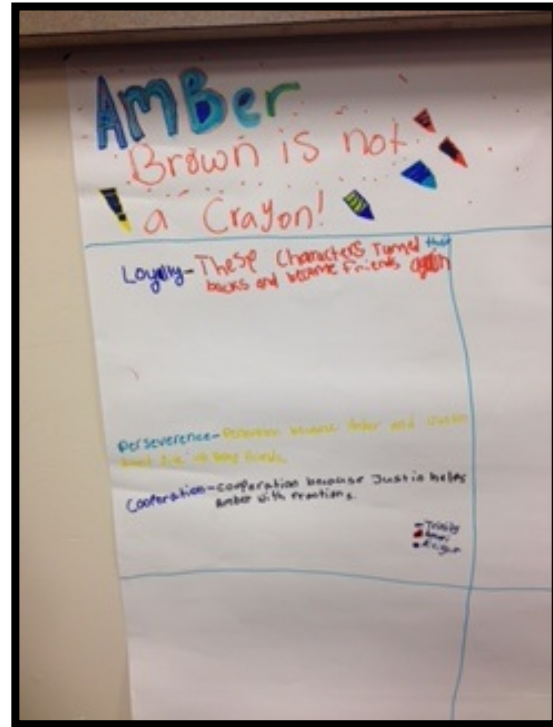 AMBer
Brown is not
a Crayon!
Loyalty- These Characters Turned their
backs and became Friends again
Perseverence- because Amber and Justin
being friends.
Cooperation-cooperation because Justin helps
Amber with fractions.
-Trinity